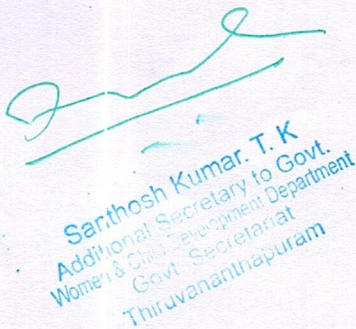 Santhosh Kumar. T. K
Additional Secretary to Govt.
Women & Child Development Department
Govt. Secretariat
Thiruvananthapuram